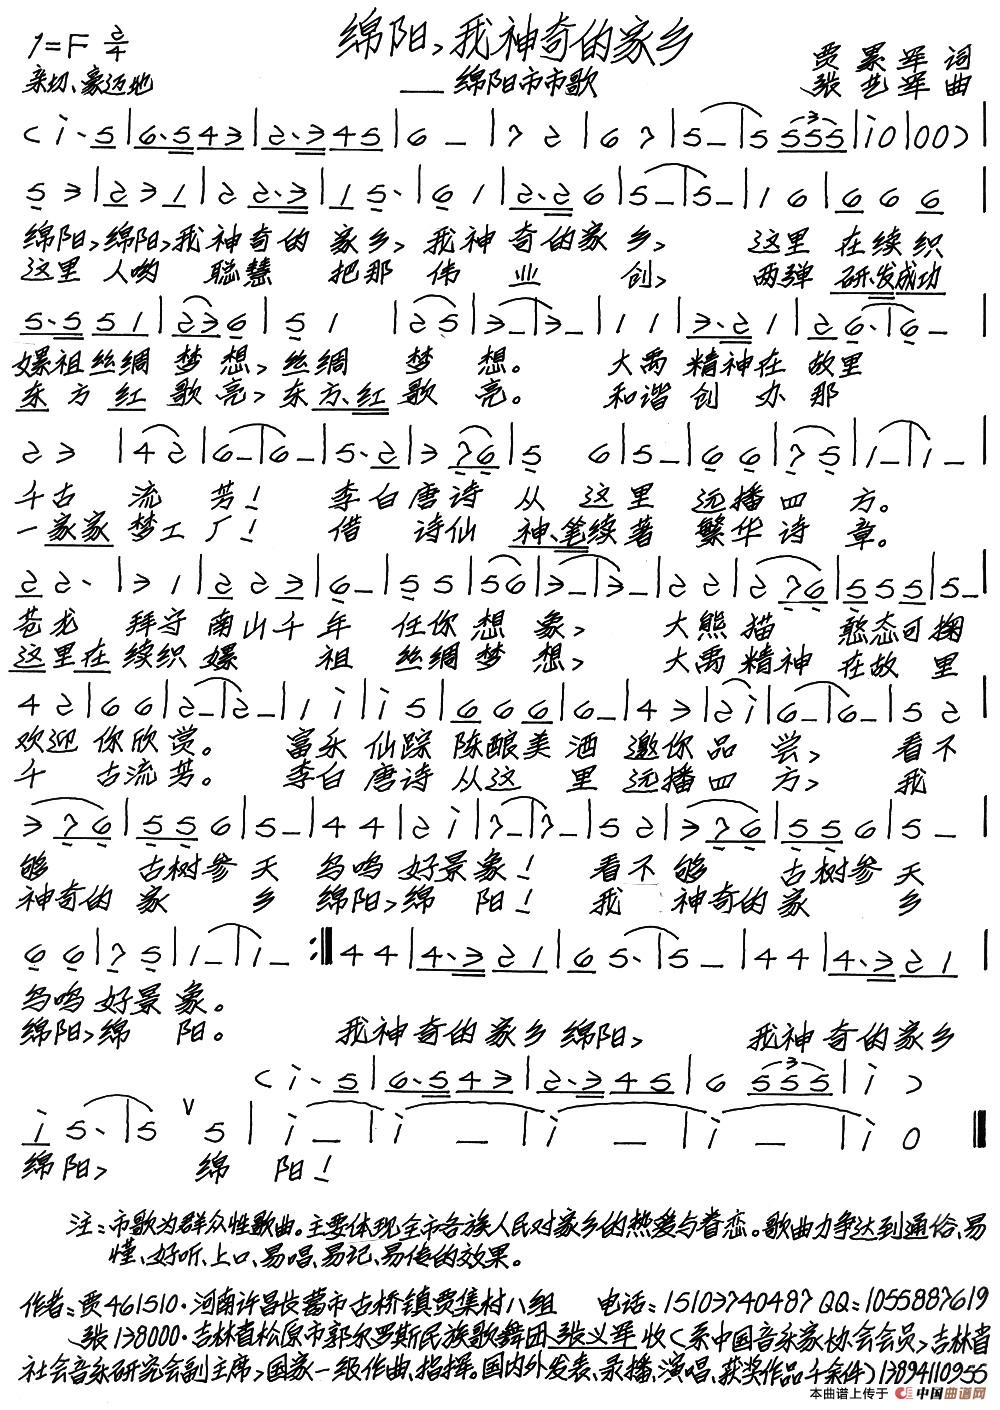 绵阳,我神奇的家乡
1=F 2/4
亲切、豪迈地
——绵阳市市歌
贾累军 词
张艺军 曲
( i· 5 | 6·5 4 3 | 2·3 4 5 | 6 – | 7 2 | 6 7 | 5 – | 5 5 5 5 | i 0 | 0 0 ) |
5 3 | 2 3 1 | 2 2·3 | 1 5· | 6 1 | 2·2 6 | 5 – | 5 – | 1 6 | 6 6 6 |
绵阳,绵阳,我神奇的 家乡, 我神 奇的家 乡, 这里 在续织
这里 人哟 聪慧 把那 伟 业 创, 两弹 研、发成功
5·5 5 1 | 2 3 6 | 5 1 | 2 5 | 3 – | 3 – | 1 1 | 3·2 1 | 2 6· | 6 – |
嫘祖丝绸 梦 想,丝绸 梦 想。 大禹 精神在 故里
东 方 红 歌 亮,东方、红 歌 亮。 和谐 创 办 那
2 3 | 4 2 | 6 – | 6 – | 5·2 | 3 7 6 | 5 6 | 5 – | 6 6 | 7 5 | 1 – | 1 – |
千古 流 芳! 李白唐诗 从 这里 远播四 方。
一家家 梦工 厂! 借 诗仙 神、笔续著 繁华诗 章。
2 2· | 3 1 | 2 2 3 | 6 – | 5 5 | 5 6 | 3 – | 3 – | 2 2 | 2 7 6 | 5 5 5 | 5 – |
苍龙 拜守 南山千 年 任你 想 象, 大熊 猫 憨态可 掬
这里在 续织 嫘 祖 丝绸梦 想, 大禹精神 在故 里
4 2 | 6 6 | 2 – | 2 – | 1 i | i 5 | 6 6 6 | 6 – | 4 3 | 2 i | 6 – | 6 – | 5 2 |
欢迎 你欣 赏。 富乐 仙踪 陈酿美 酒 邀你 品 尝, 看不
千 古流 芳。 李白 唐诗 从这 里 远播四 方, 我
3 7 6 | 5 5 6 | 5 – | 4 4 | 2 i | 7 – | 7 – | 5 2 | 3 7 6 | 5 5 6 | 5 – |
够 古树参 天 鸟鸣 好景 象! 看不 够 古树参 天
神奇的 家 乡 绵阳,绵 阳! 我 神奇的 家 乡
6 6 | 7 5 | 1 – | 1 – :‖ 4 4 | 4·3 2 1 | 6 5· | 5 – | 4 4 | 4·3 2 1 |
鸟鸣 好景 象。
绵阳,绵 阳。 我神 奇的家乡 绵阳, 我神 奇的家乡
( i· 5 | 6·5 4 3 | 2·3 4 5 | 6 5 5 5 | i )
i 5· | 5 ∨ 5 | i – | i – | i – | i – | i 0 ‖
绵阳, 绵 阳!
注:市歌为群众性歌曲。主要体现全市各族人民对家乡的热爱与眷恋。歌曲力争达到通俗、易
懂、好听、上口、易唱、易记、易传的效果。
作者:贾461510·河南许昌长葛市古桥镇贾集村八组 电话:15103740487 QQ:1055887619
张138000·吉林省松原市郭尔罗斯民族歌舞团张义军 收(系中国音乐家协会会员,吉林省
社会音乐研究会副主席,国家一级作曲、指挥。国内外发表、录播、演唱、获奖作品千余件)13894110955
本曲谱上传于 中国曲谱网